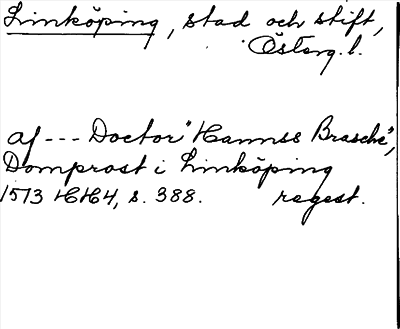 Linköping, stad och stift,
Österg. l.
af --- Doctor "Hannss Braschs",
Domprost i Linköping
1513 HH4, s. 388. regest.